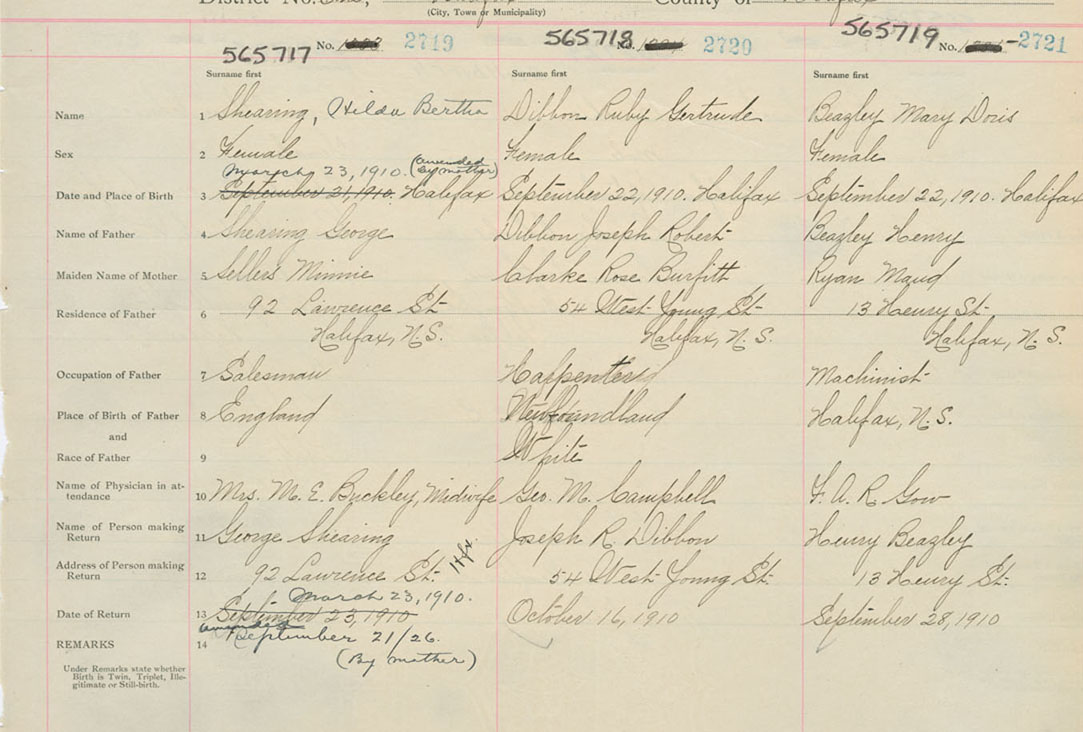 District No. (City, Town or Municipality) County of
565717 No. 2719 565718 No. 2720 565719 No. 2721
Surname first Surname first Surname first
Name 1 Shearing, Hilda Bertha Dibbon Ruby Gertrude Beazley Mary Doris
Sex 2 Female Female Female
March 23, 1910. (amended by mother)
Date and Place of Birth 3 September 21, 1910. Halifax September 22, 1910. Halifax September 22, 1910. Halifax
Name of Father 4 Shearing George Dibbon Joseph Robert Beazley Henry
Maiden Name of Mother 5 Sellers Minnie Clarke Rose Burfitt Ryan Maud
Residence of Father 6 92 Lawrence St. 54 West Young St. 13 Henry St.
Halifax, N.S. Halifax, N.S. Halifax, N.S.
Occupation of Father 7 Salesman Carpenter Machinist
Place of Birth of Father 8 England Newfoundland Halifax, N.S.
and
Race of Father 9 White
Name of Physician in at-
tendance 10 Mrs. M. E. Buckley, Midwife Geo. M. Campbell F. A. R. Gow
Name of Person making
Return 11 George Shearing Joseph R. Dibbon Henry Beazley
Address of Person making
Return 12 92 Lawrence St. Hfx 54 West Young St. 13 Henry St.
March 23, 1910.
Date of Return 13 September 23, 1910 October 16, 1910 September 28, 1910
amended
REMARKS 14 September 21/26.
(By mother)
Under Remarks state whether
Birth is Twin, Triplet, Ille-
gitimate or Still-birth.